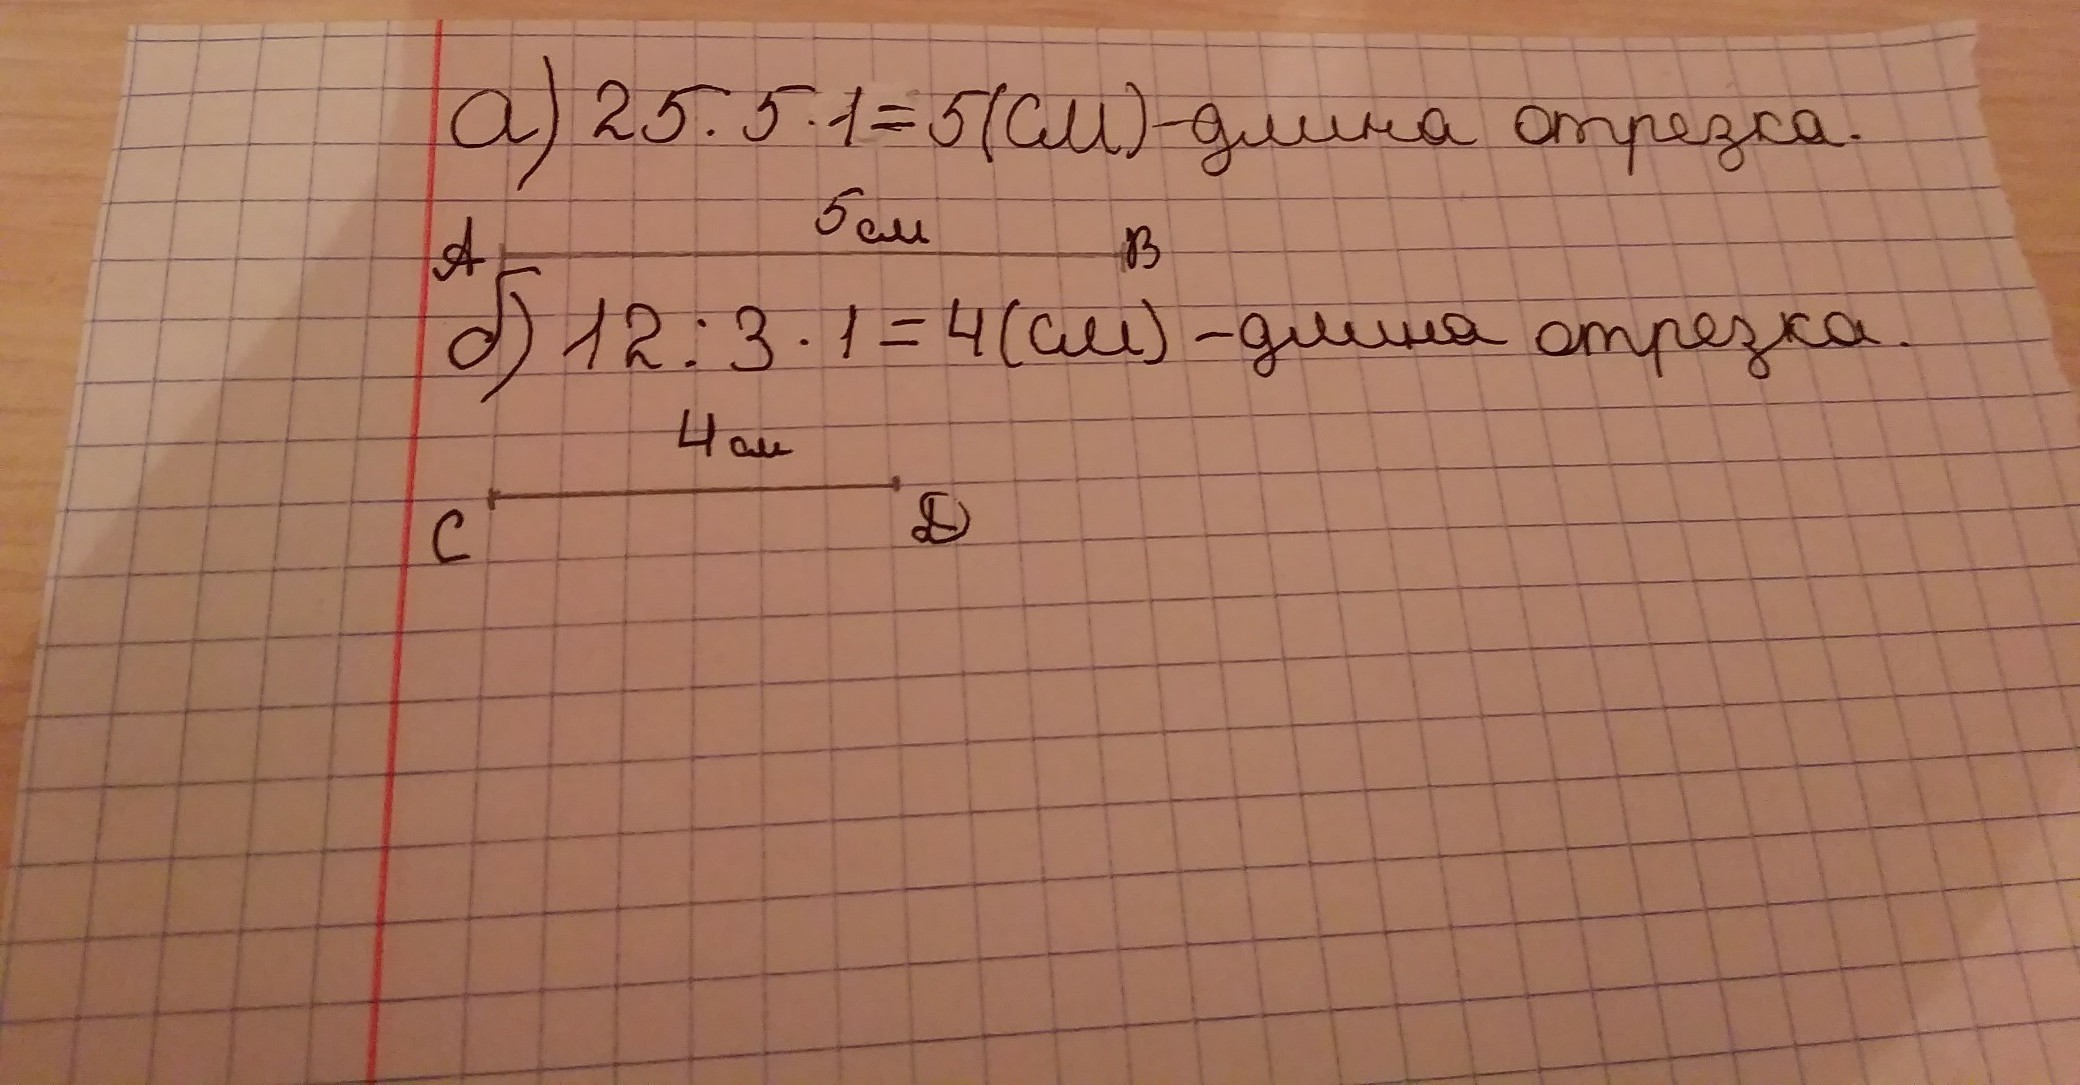 а) 25:5·1=5(см)-длина отрезка.
5см
А В
б) 12:3·1=4(см)-длина отрезка.
4см
С D